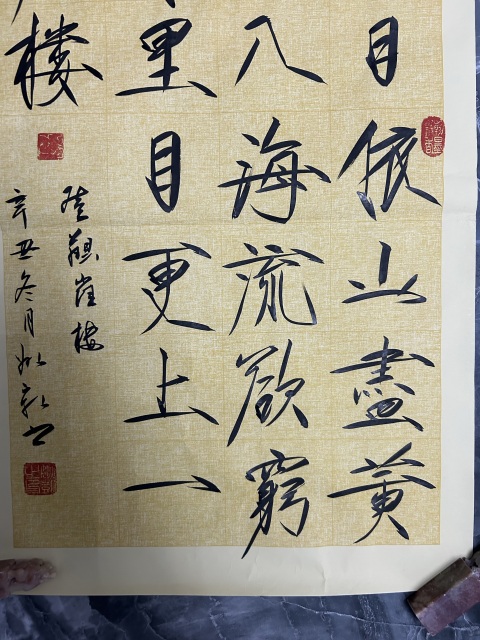 日依山盡黃
入海流欲窮
里目更上一
樓
登鸛雀樓
辛丑冬月如書